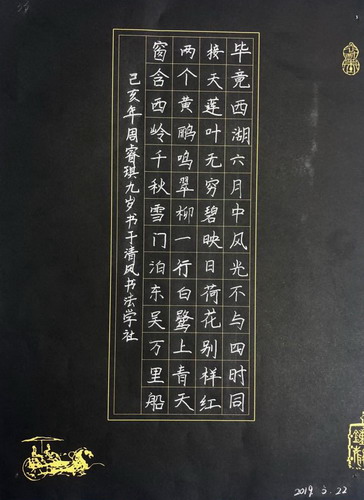 毕竟西湖六月中风光不与四时同
接天莲叶无穷碧映日荷花别样红
两个黄鹂鸣翠柳一行白鹭上青天
窗含西岭千秋雪门泊东吴万里船
己亥年周睿琪九岁书于清风书法学社
2019.3.22